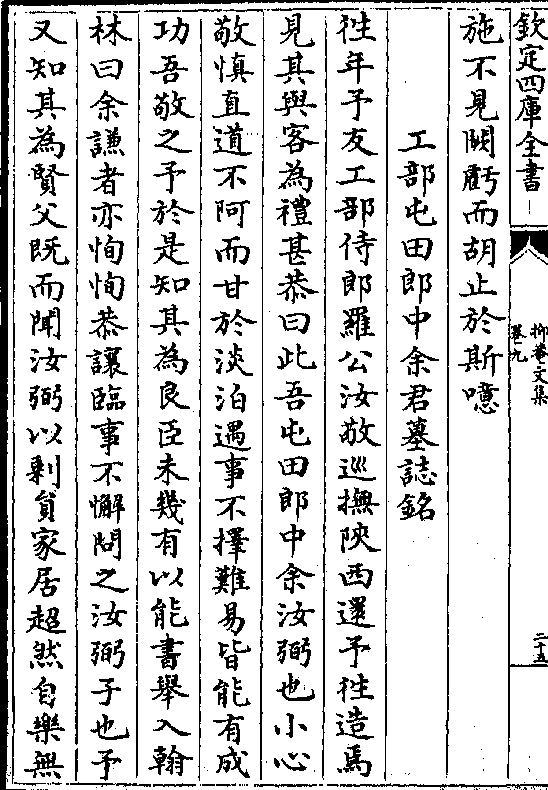 欽定四庫全書
抑菴文集
卷九
二十五
施不見闕虧而胡止於斯噫
工部屯田郎中余君墓誌銘
徃年予友工部侍郎羅公汝敬巡撫陜西還予徃造焉
見其與客為禮甚恭曰此吾屯田郎中余汝弼也小心
敬慎直道不阿而甘於淡泊遇事不擇難易皆能有成
功吾敬之予於是知其為良臣未幾有以能書舉入翰
林曰余謙者亦恂恂恭讓臨事不懈問之汝弼子也予
又知其為賢父既而聞汝弼以剰員家居超然自樂無